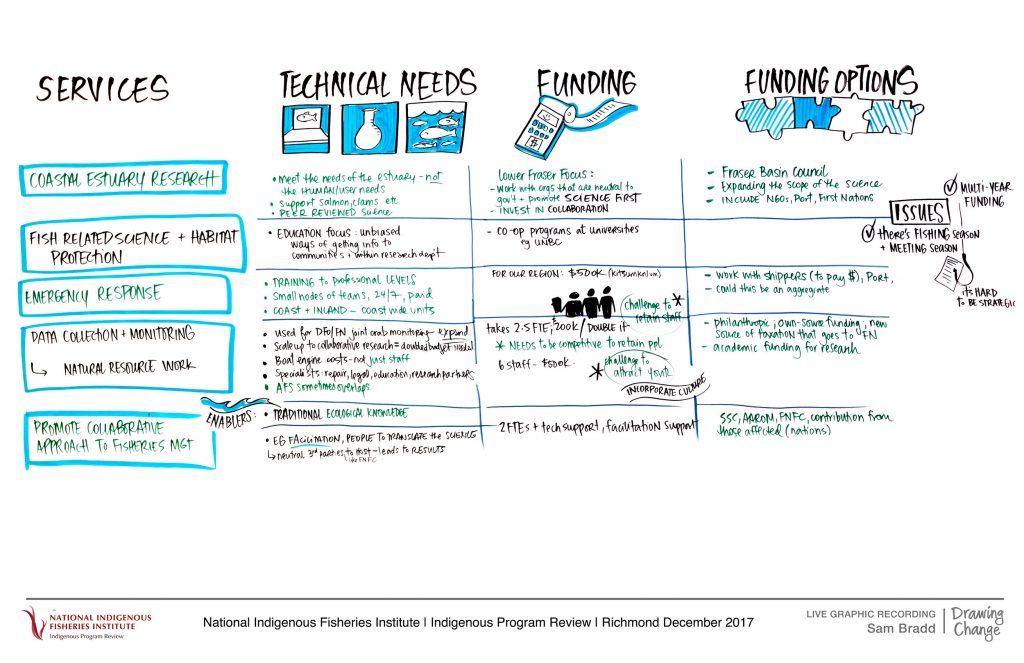 SERVICES
TECHNICAL NEEDS
FUNDING
FUNDING OPTIONS
COASTAL ESTUARY RESEARCH
• meet the needs of the estuary - not
the HUMAN/user needs
• support salmon, clams etc
• PEER REVIEWED Science
Lower Fraser Focus:
- Work with orgs that are neutral to
gov't + promote SCIENCE FIRST
- INVEST IN COLLABORATION
- Fraser Basin Council
- Expanding the scope of the science
- INCLUDE NGOs, Port, First Nations
MULTI-YEAR
FUNDING
ISSUES
there's FISHING season
+ MEETING season
it's HARD
to BE STRATEGIC
FISH RELATED SCIENCE + HABITAT
PROTECTION
• EDUCATION focus: unbiased
ways of getting info to
communities + within research dept
- CO-OP programs at universities
eg UNBC
EMERGENCY RESPONSE
• TRAINING to professional LEVELS
• Small nodes of teams, 24/7, paid
• COAST + INLAND - coast wide units
FOR OUR REGION: $500K (kitsumkalum)
challenge to
retain staff
- work with shippers (to pay $), Port,
- could this be an aggregate
DATA COLLECTION + MONITORING
↳ NATURAL RESOURCE WORK
• used for DFO/FN joint crab monitoring - expand
• Scale up to collaborative research = doubled budget if needed
• Boat engine costs - not just staff
• Specialists: repair, legal, education, research partners
• AFS sometimes overlaps
takes 2.5 FTE, 200K / DOUBLE it
* NEEDS to be competitive to retain ppl
6 staff - $500K
challenge to
attract youth
- philanthropic; own-source funding; new
source of taxation that goes to FN
- academic funding for research
INCORPORATE CULTURE
ENABLERS:
• TRADITIONAL ECOLOGICAL KNOWLEDGE
PROMOTE COLLABORATIVE
APPROACH TO FISHERIES MGT
• EG FACILITATION, PEOPLE TO TRANSLATE the SCIENCE
↳ neutral 3rd parties, to host - leads to RESULTS
like FNFC
2 FTEs + tech support, facilitation support
SSC, AAROM, FNFC, contribution from
those affected (nations)
NATIONAL INDIGENOUS
FISHERIES INSTITUTE
Indigenous Program Review
National Indigenous Fisheries Institute | Indigenous Program Review | Richmond December 2017
LIVE GRAPHIC RECORDING
Sam Bradd
Drawing
Change